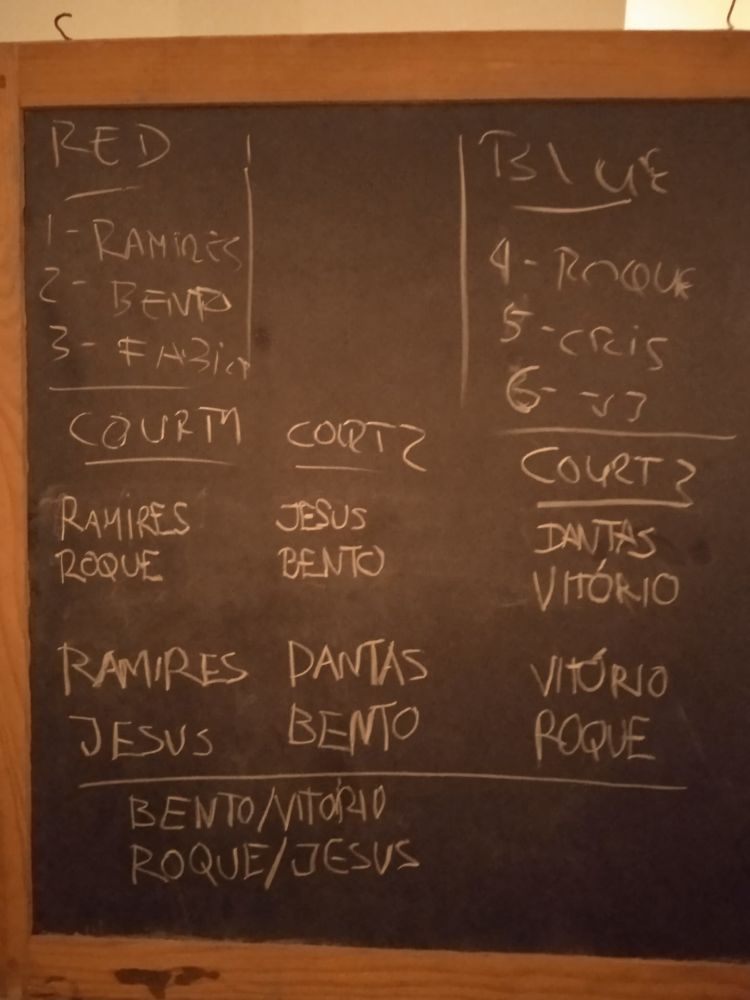 RED
1- RAMIRES
2- BENTO
3- FABIO
BLUE
4- ROQUE
5- CRIS
6-
COURT 1
RAMIRES
ROQUE
RAMIRES
JESUS
COURT 2
JESUS
BENTO
DANTAS
BENTO
COURT 3
DANTAS
VITÓRIO
VITÓRIO
ROQUE
BENTO/VITÓRIO
ROQUE/JESUS